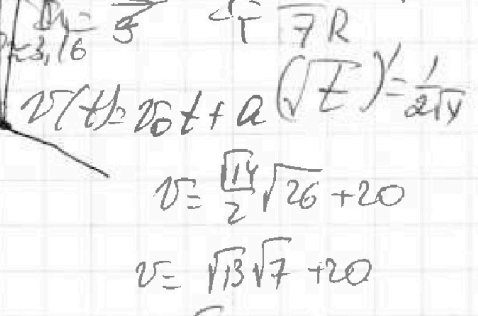 ≈3,16
7R
v(t)=v₀t+a(√t)'=1/(2√4)
v=√14/2 √26 +20
v=√13√7 +20